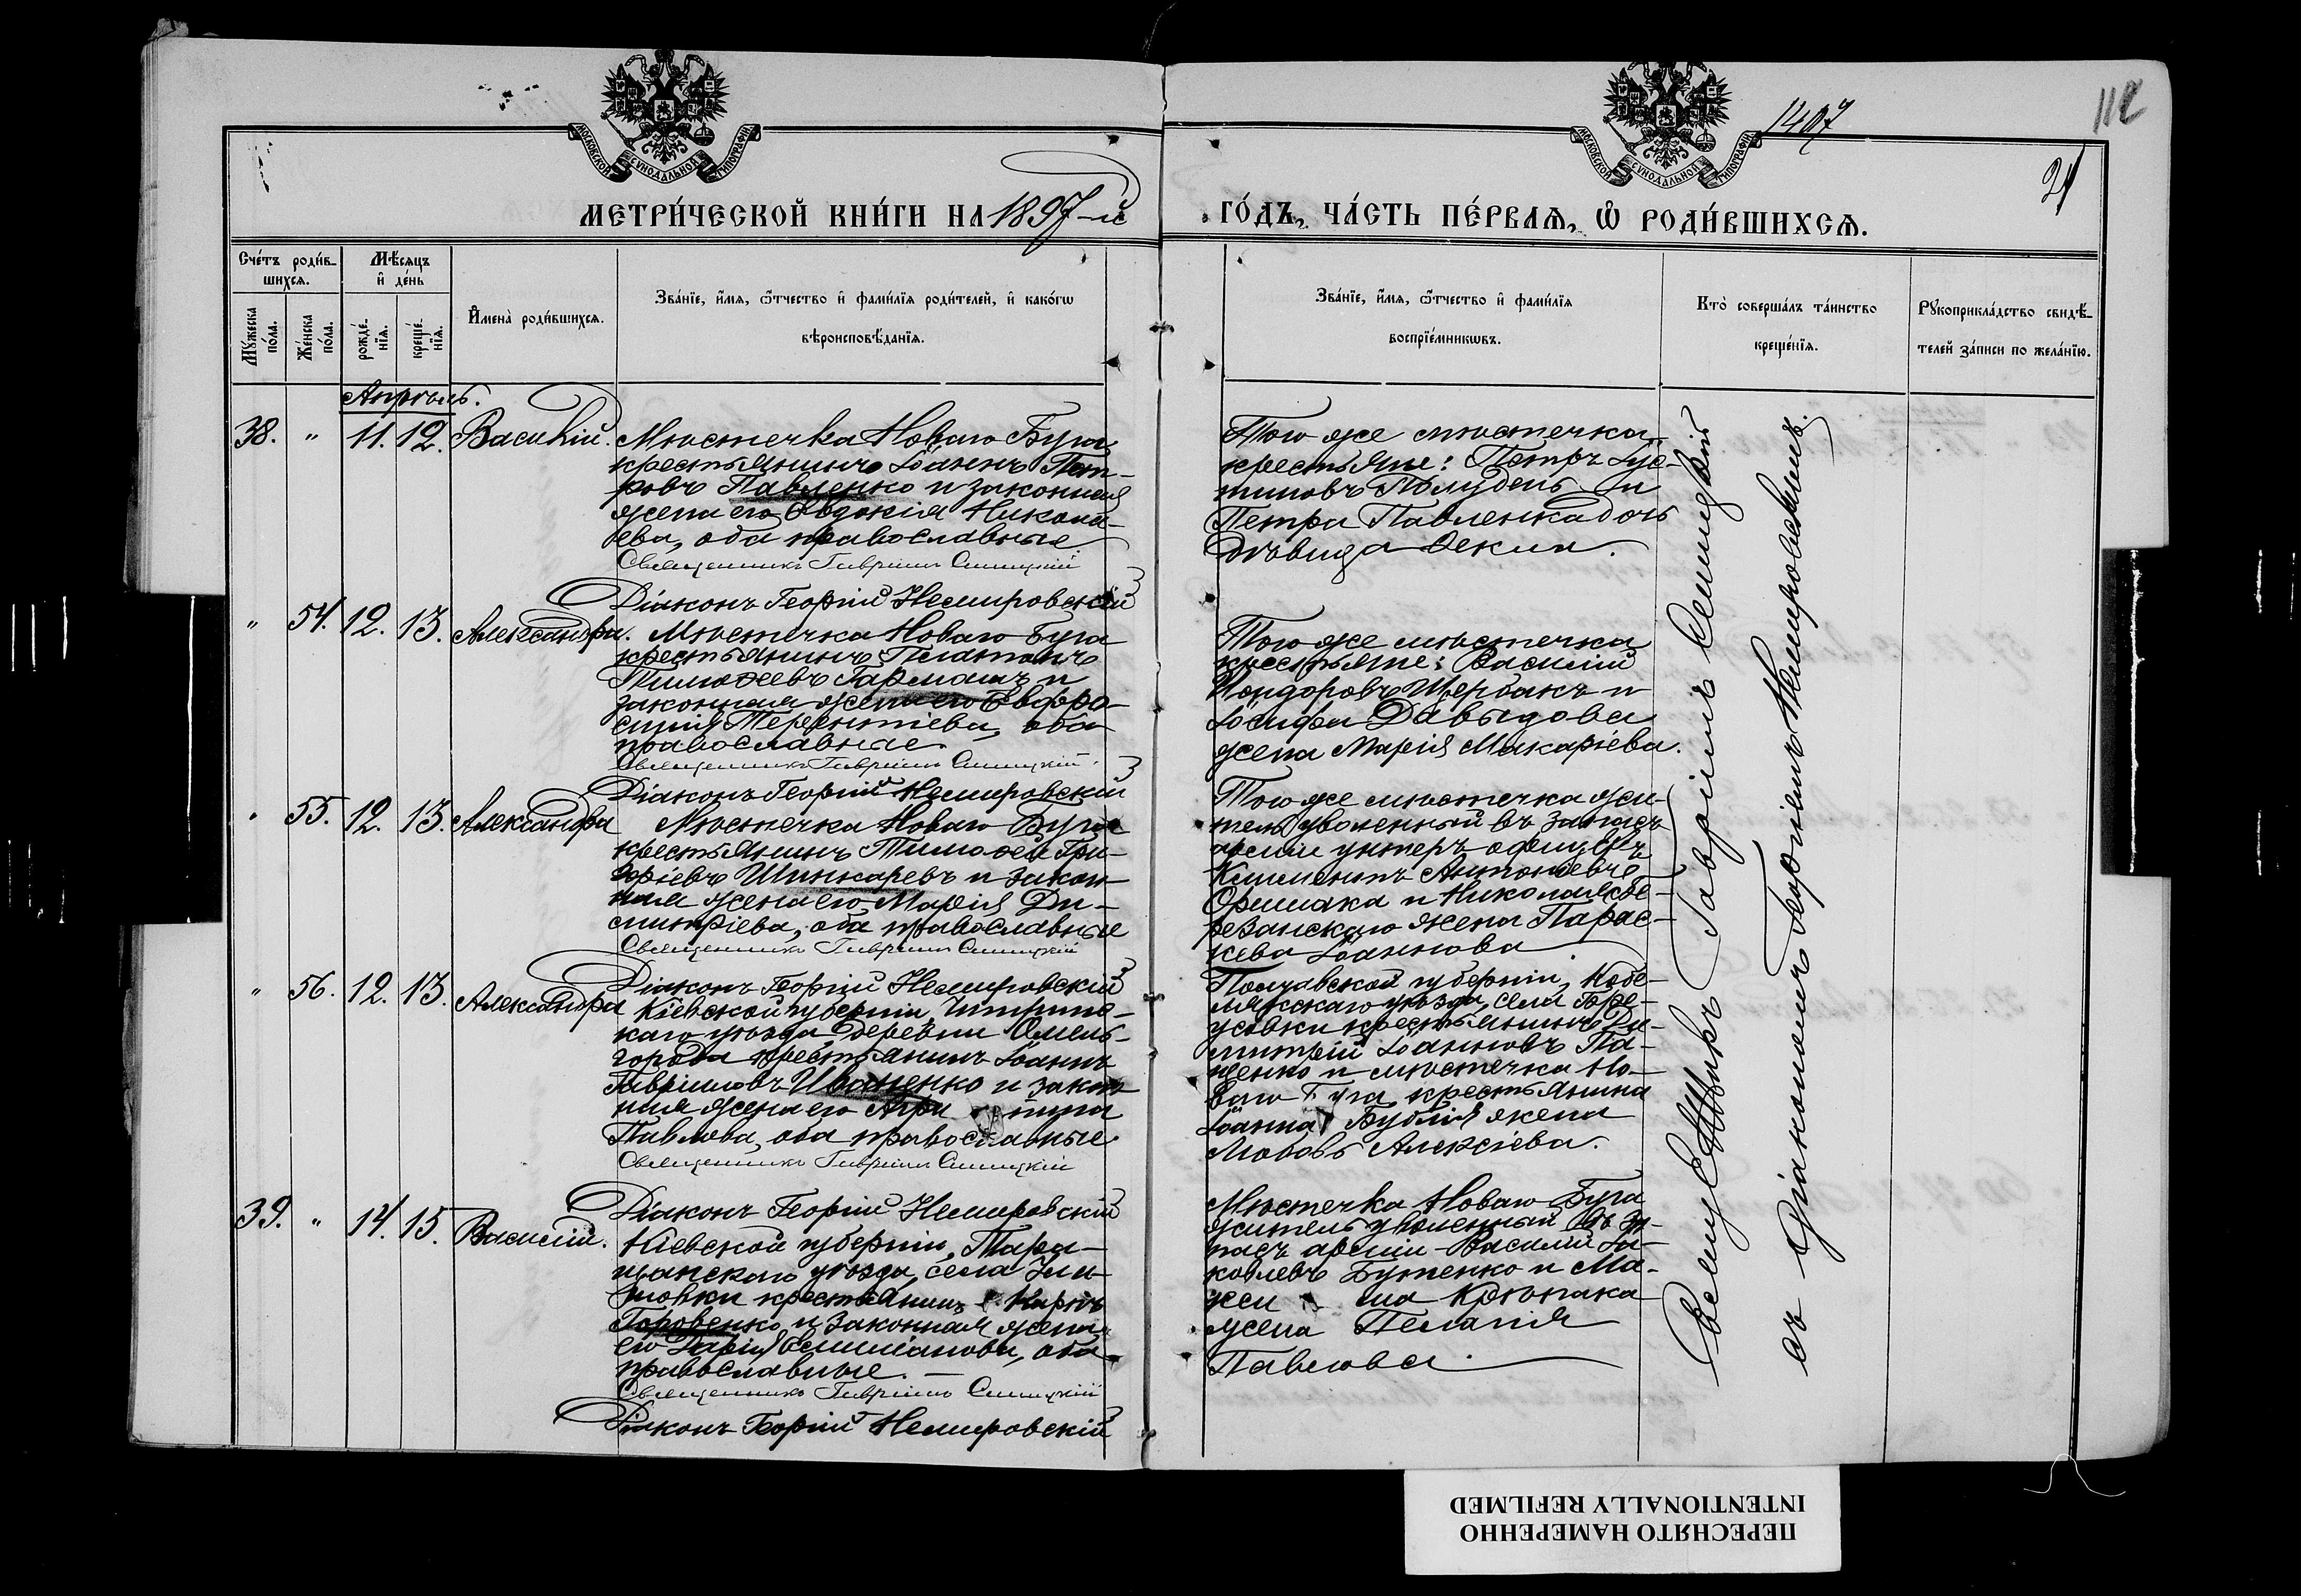 1407
112
21
МОСКОВСКОЙ СѴНОДАЛЬНОЙ ТИПОГРАФІИ
МОСКОВСКОЙ СѴНОДАЛЬНОЙ ТИПОГРАФІИ
МЕТРИ́ЧЕСКОЙ КНИ́ГИ НА 1897-й
ГО́ДЪ, ЧА́СТЬ ПЕ́РВАѦ, Ѡ҆ РОДИ́ВШИХСѦ.
Сче́тъ роди́в-
шихсѧ.
Мѣ́сѧцъ
и҆ де́нь
Мꙋ́жеска
по́ла.
Же́нска
по́ла.
рожде́-
нїѧ.
креще́-
нїѧ.
И҆мена̀ роди́вшихсѧ.
Зва́нїе, и҆́мѧ, ѻ҆́тчество и҆ фами́лїѧ роди́телей, и҆ како́гѡ
вѣроисповѣ́данїѧ.
Зва́нїе, и҆́мѧ, ѻ҆́тчество и҆ фами́лїѧ
воспрїе́мникѡвъ.
Кто̀ соверша́лъ та́инство
креще́нїѧ.
Рꙋкоприкла́дство свидѣ́-
телей за́писи по жела́нїю.
Апрѣль.
38. " 11. 12. Василій.
Мѣстечка Новаго Буга
крестьянинъ Іоаннъ Пет-
ровъ Павленко и законная
жена его Евдокія Никола-
ева, оба православные
Священникъ Гавріилъ Синицкій
Діаконъ Георгій Немировскій
Того же мѣстечка
крестьяне: Петръ Іус-
тиновъ Полудень и
Петра Павленка дочь
дѣвица Ѳекла.
" 54. 12. 13. Александра.
Мѣстечка Новаго Буга
крестьянинъ Платонъ
Тимоѳеевъ Гармашъ и
законная жена его Евфро-
синія Терентіева, оба
православные.
Священникъ Гавріилъ Синицкій.
Діаконъ Георгій Немировскій
Того же мѣстечка
крестьяне: Василій
Щербакъ и
Іосифа Давыдова
жена Марія Макаріева.
" 55. 12. 13. Александра
Мѣстечка Новаго Буга
крестьянинъ Тимоѳей Гри-
горіевъ Шинкаревъ и закон-
ная жена его Марія Ди-
митріева, оба православные
Священникъ Гавріилъ Синицкій
Діаконъ Георгій Немировскій
Того же мѣстечка жи-
тель уволенный въ запасъ
арміи унтеръ-офицеръ
Климентъ Антоніевъ
и Николая
жена Парас-
кева Іоаннова
" 56. 12. 13. Александра
Кіевской губерніи,
каго уѣзда, деревни Омель-
города крестьянинъ Іоаннъ
Гавріиловъ Иваненко и закон-
ная жена его Агри пина
Павлова, оба православные.
Священникъ Гавріилъ Синицкій
Діаконъ Георгій Немировскій
Полтавской губерніи, Кобе-
лякскаго уѣзда, села
крестьянинъ Ди-
митрій Іоанновъ Па-
щенко и мѣстечка Но-
ваго Буга крестьянина
Іоанна жена
Любовь Алексіева.
39. " 14. 15. Василій.
Кіевской губерніи, Тара-
щанскаго уѣзда, села
крестьянинъ Карпъ
Горовенко и законная жена
его Дарія Емиліанова, оба
православные.
Священникъ Гавріилъ Синицкій
Діаконъ Георгій Немировскій
Мѣстечка Новаго Буга
житель уволенный въ за-
пасъ арміи Василій Іа-
ковлевъ Бутенко и Ма-
жена Пелагія
Павлова.
Священникъ Гавріилъ Синицкій
съ діакономъ Георгіемъ Немировскимъ.
ПЕРЕСНЯТО НАМЕРЕННО
INTENTIONALLY REFILMED